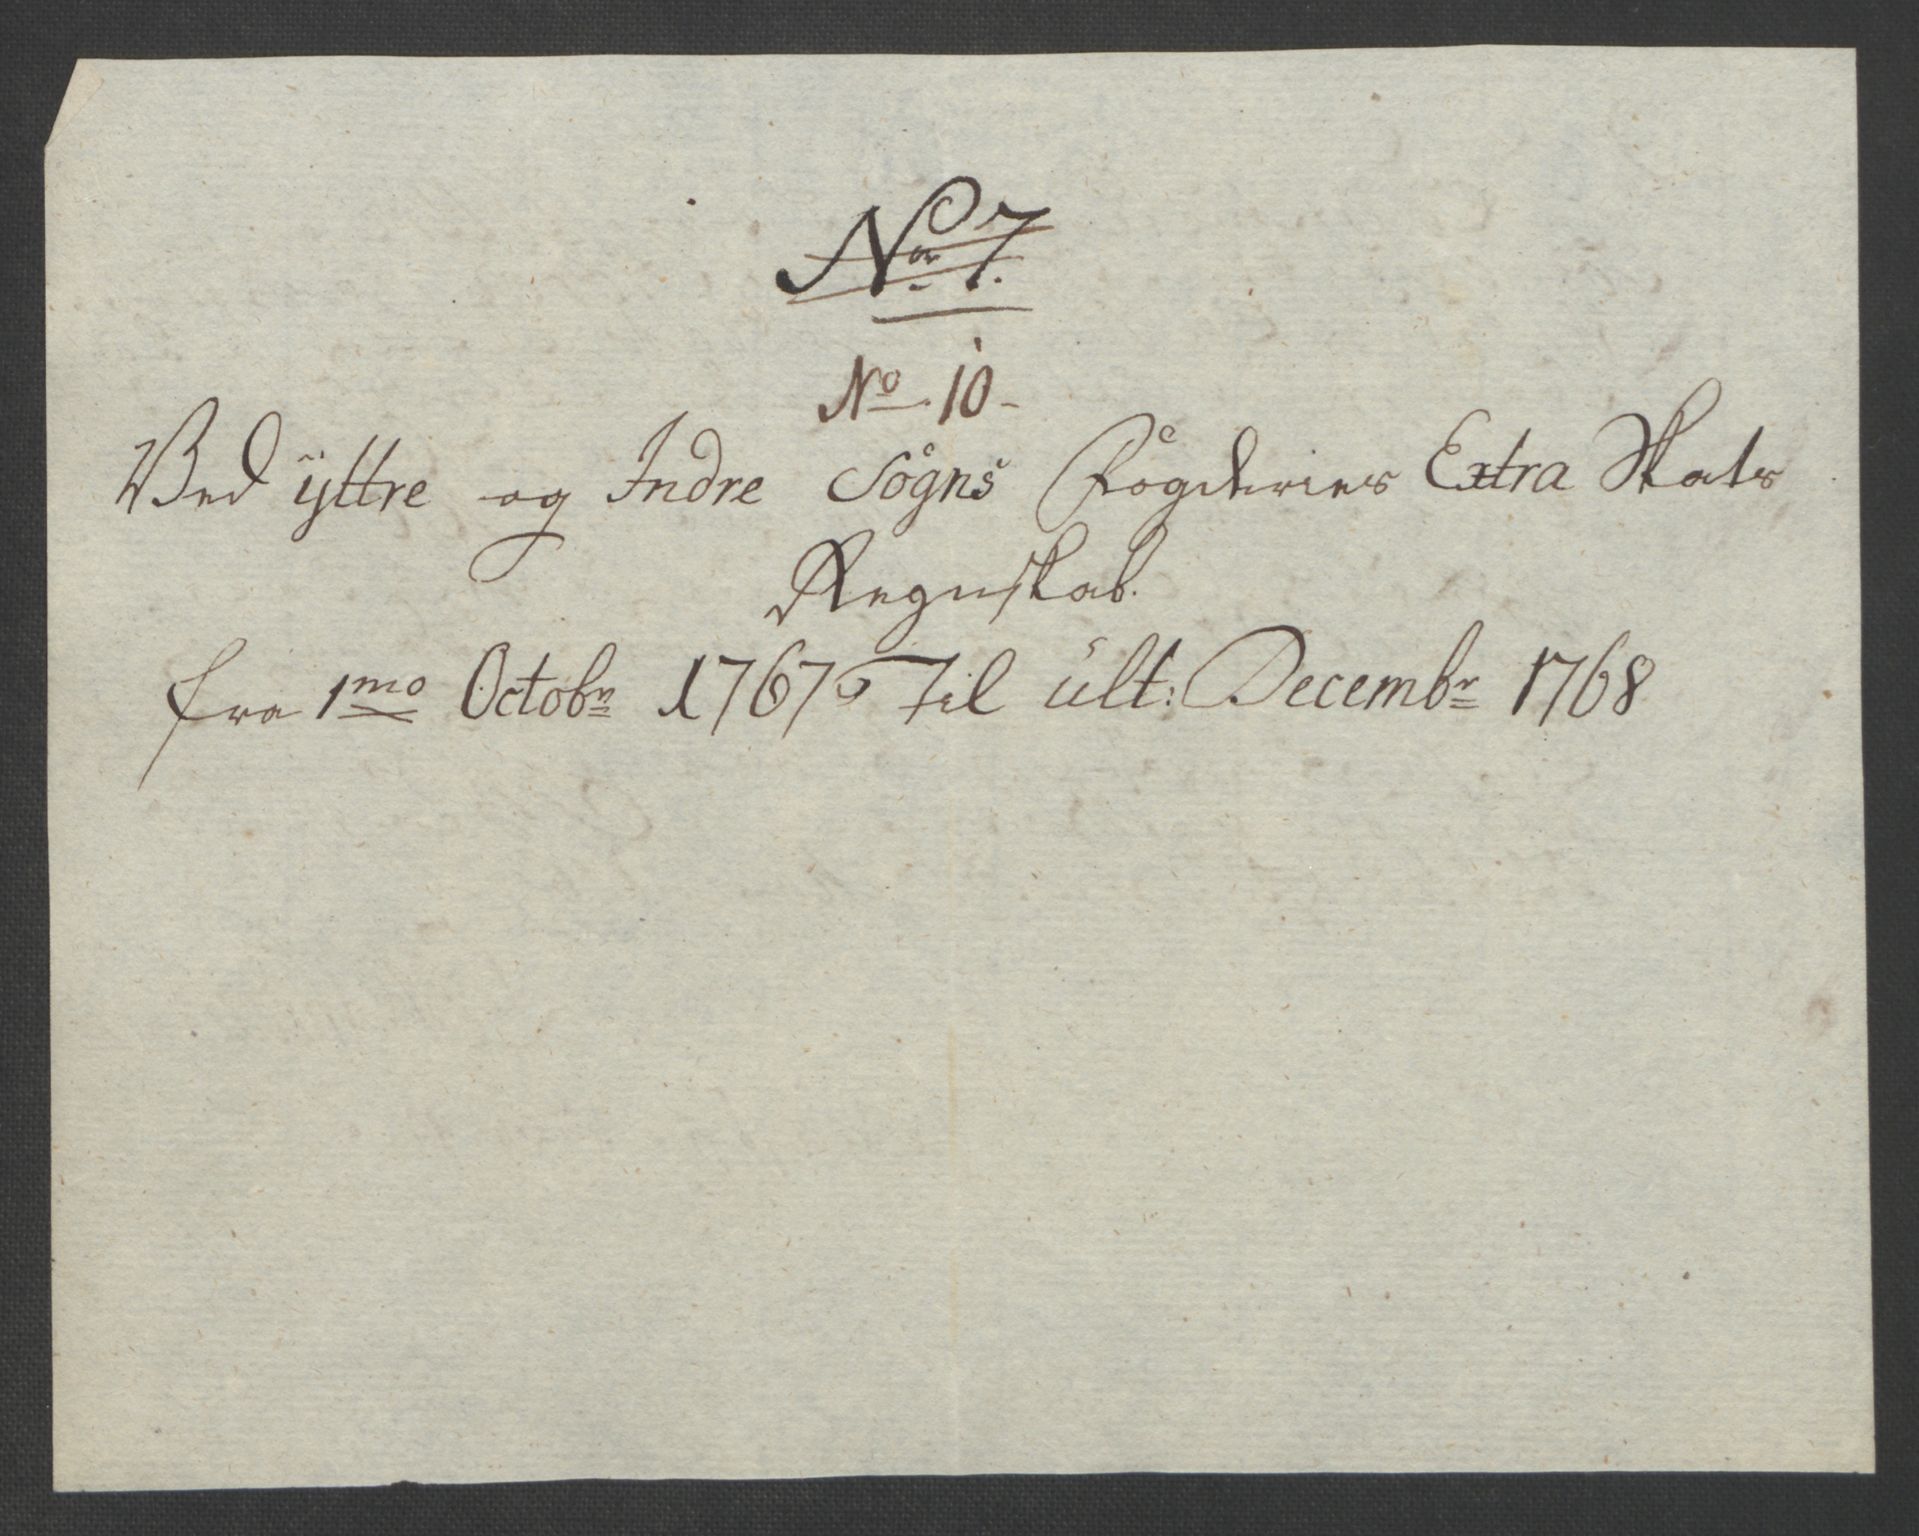 Nor. 7.
No. 10-
Ved ÿttre og Indre Sogns Fogderies Extra Skats
Regnskab.
fra 1mo Octobr 1767 Til ult: Decembr 1768